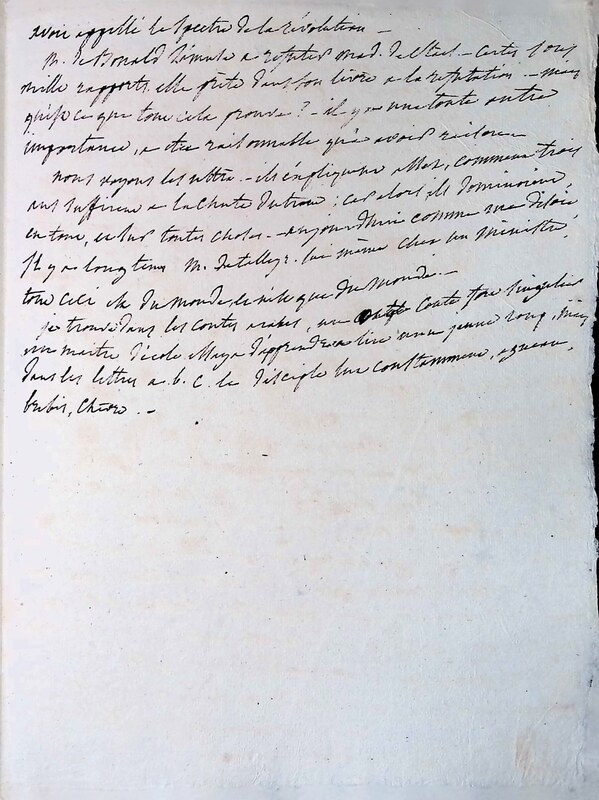 avoir appellé le Spectre de la révolution —
M. de Bonald a refuté mad. de Stael. — certes Sous
mille rapports elle prete dans son livre a la refutation. — mais
qu'est ce que tout cela prouve ? — il y a une toute autre
importance, a etre raisonnable qu'a avoir raison
nous voyons les ultra. — ils expliquent assez, comment trois
ans suffirent a la chute du trone : car alors ils dominoient
en tout, et sur toutes choses. — aujourdhui comme
Il y a longtems M. de lui même chez un ministre,
tout ceci est du monde, et n'est que du monde. —
je trouve dans les contes arabes, un conte fort singulier
un maitre d'école essaya d'apprendre a lire a un jeune loup,
dans les lettres a. b. c. le disciple lut constamment, agneau,
brebis, chevre. —